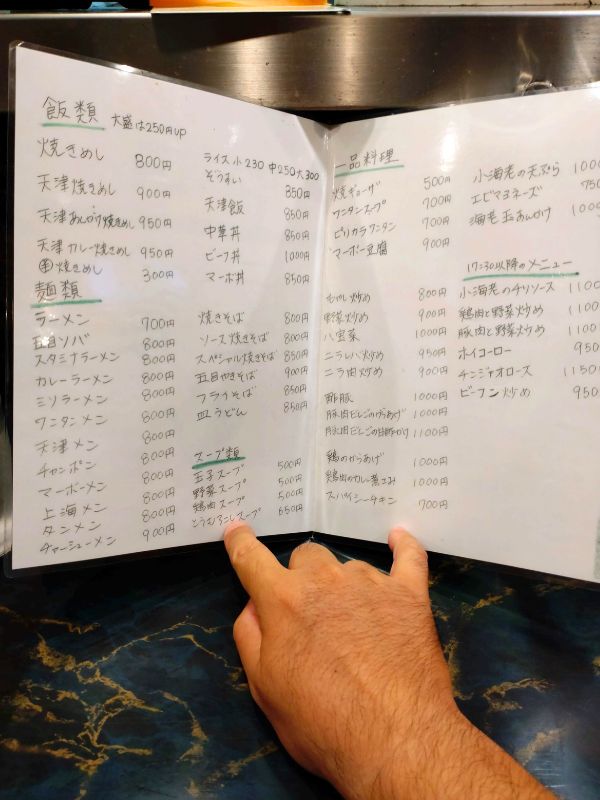 飯類 大盛は250円UP
焼きめし 800円
天津焼きめし 900円
天津あんかけ焼きめし 950円
天津カレー焼きめし 950円
焼きめし 300円
ライス小230 中250大300
ぞうすい 850円
天津飯 850円
中華丼 850円
ビーフ丼 1000円
マーボ丼 850円
麺類
ラーメン 700円
五目ソバ 800円
スタミナラーメン 800円
カレーラーメン 800円
ミソラーメン 800円
ワンタンメン 800円
天津メン 800円
チャンポン 800円
マーボーメン 800円
上海メン 800円
タンメン 800円
チャーシューメン 900円
焼きそば 800円
ソース焼きそば 800円
スペシャル焼きそば 850円
五目やきそば 900円
フライそば 850円
皿うどん 850円
スープ類
玉子スープ 500円
野菜スープ 500円
鶏肉スープ 500円
とうもろこしスープ 650円
一品料理
焼ギョーザ 500円
ワンタンスープ 700円
ピリカラワンタン 700円
マーボー豆腐 900円
もやし炒め 800円
野菜炒め 900円
八宝菜 1000円
ニラレバ炒め 950円
ニラ肉炒め 900円
酢豚 1000円
豚肉だんごのからあげ 1000円
豚肉だんごの甘酢かけ 1100円
鶏のからあげ 1000円
鶏肉のカレー煮こみ 1000円
スパイシーチキン 700円
小海老の天ぷら 1000
エビマヨネーズ 750
海老玉あんかけ 1000
17:30以降のメニュー
小海老のチリソース 1100
鶏肉と野菜炒め 1100
豚肉と野菜炒め 1100
ホイコーロー 950
チンジャオロース 1150
ビーフン炒め 950